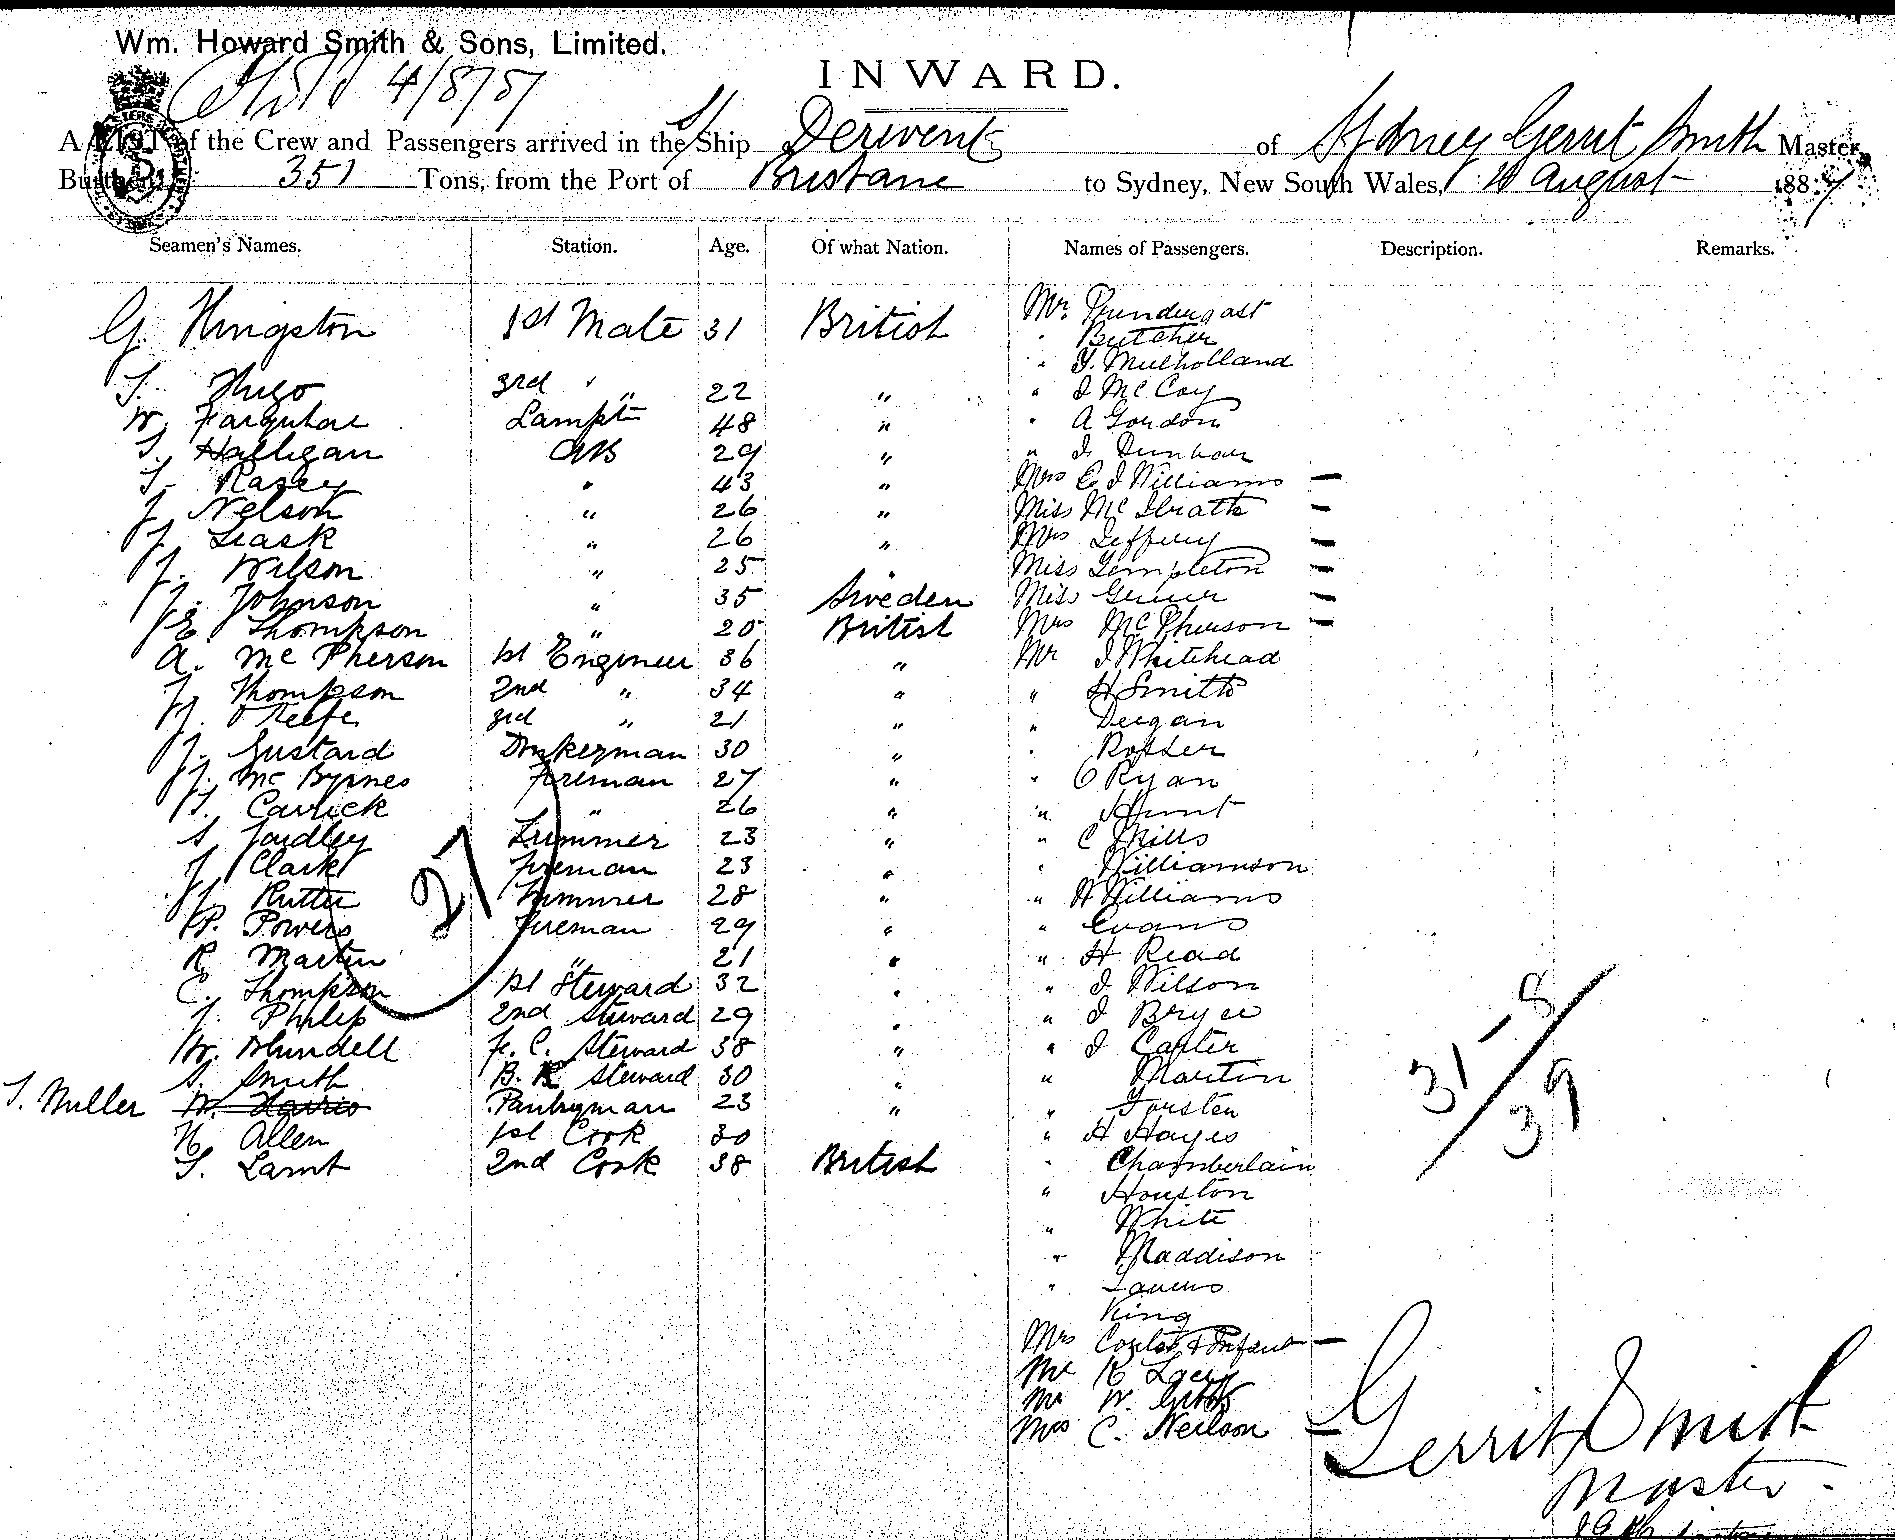 Wm. Howard Smith & Sons, Limited.
4/8/87
INWARD.
A LIST of the Crew and Passengers arrived in the S/Ship Derwent of Sydney Gerrit Smith Master,
Burthen 351 Tons, from the Port of Brisbane to Sydney, New South Wales, August 1887
Seamen's Names. Station. Age. Of what Nation. Names of Passengers. Description. Remarks.
G. Kingston 1st Mate 31 British Mr. Prundergast
" Butcher
" Y. Mulholland
T. Hugo 3rd " 22 " " J McCoy
W. Farquhar Lampt 48 " " A Gordon
T. Halligan AB 29 " " J. Dunbar
T. Rasey " 43 " Mrs C J Williams —
J. Nelson " 26 " Miss McIlrath —
J. Leask " 26 " Mrs Jeffery —
J. Wilson " 25 " Miss Templeton —
J. Johnson " 35 Sweden Miss —
E. Thompson " 20 British Mrs McPherson —
A. McPherson 1st Engineer 36 " Mr J Whitehead
J. Thompson 2nd " 34 " " H Smith
J. O'Keefe 3rd " 21 " " Deegan
J. Gustard Donkeyman 30 " " Rosser
J. McByrnes Fireman 27 " " O Ryan
T. Carrick " 26 " " Hunt
S. Yardley Trimmer 23 " " C Mills
J. Clark Fireman 23 " " Williamson
J. Rutter Trimmer 28 " " W Williams
P. Powers Fireman 29 " " Evans
R. Martin " 21 " " H Read
C. Thompson 1st Steward 32 " " J. Wilson
J. Philip 2nd Steward 29 " " J Bryce
W. Blundell F. C. Steward 38 " " J Carter
S. Smith B. R. Steward 30 " " Martin
T. Miller W. Harris Pantryman 23 " " Forsten
H. Allen 1st Cook 30 " H Hayes
T. Lamb 2nd Cook 38 British " Chamberlain
" Houston
" White
" Maddison
"
King
Mrs Coulter & Infant —
Mr R Lacey
Mr W. Gibbs
Mrs C. Neilson —
27
31 – 8
39
Gerrit Smith
Master